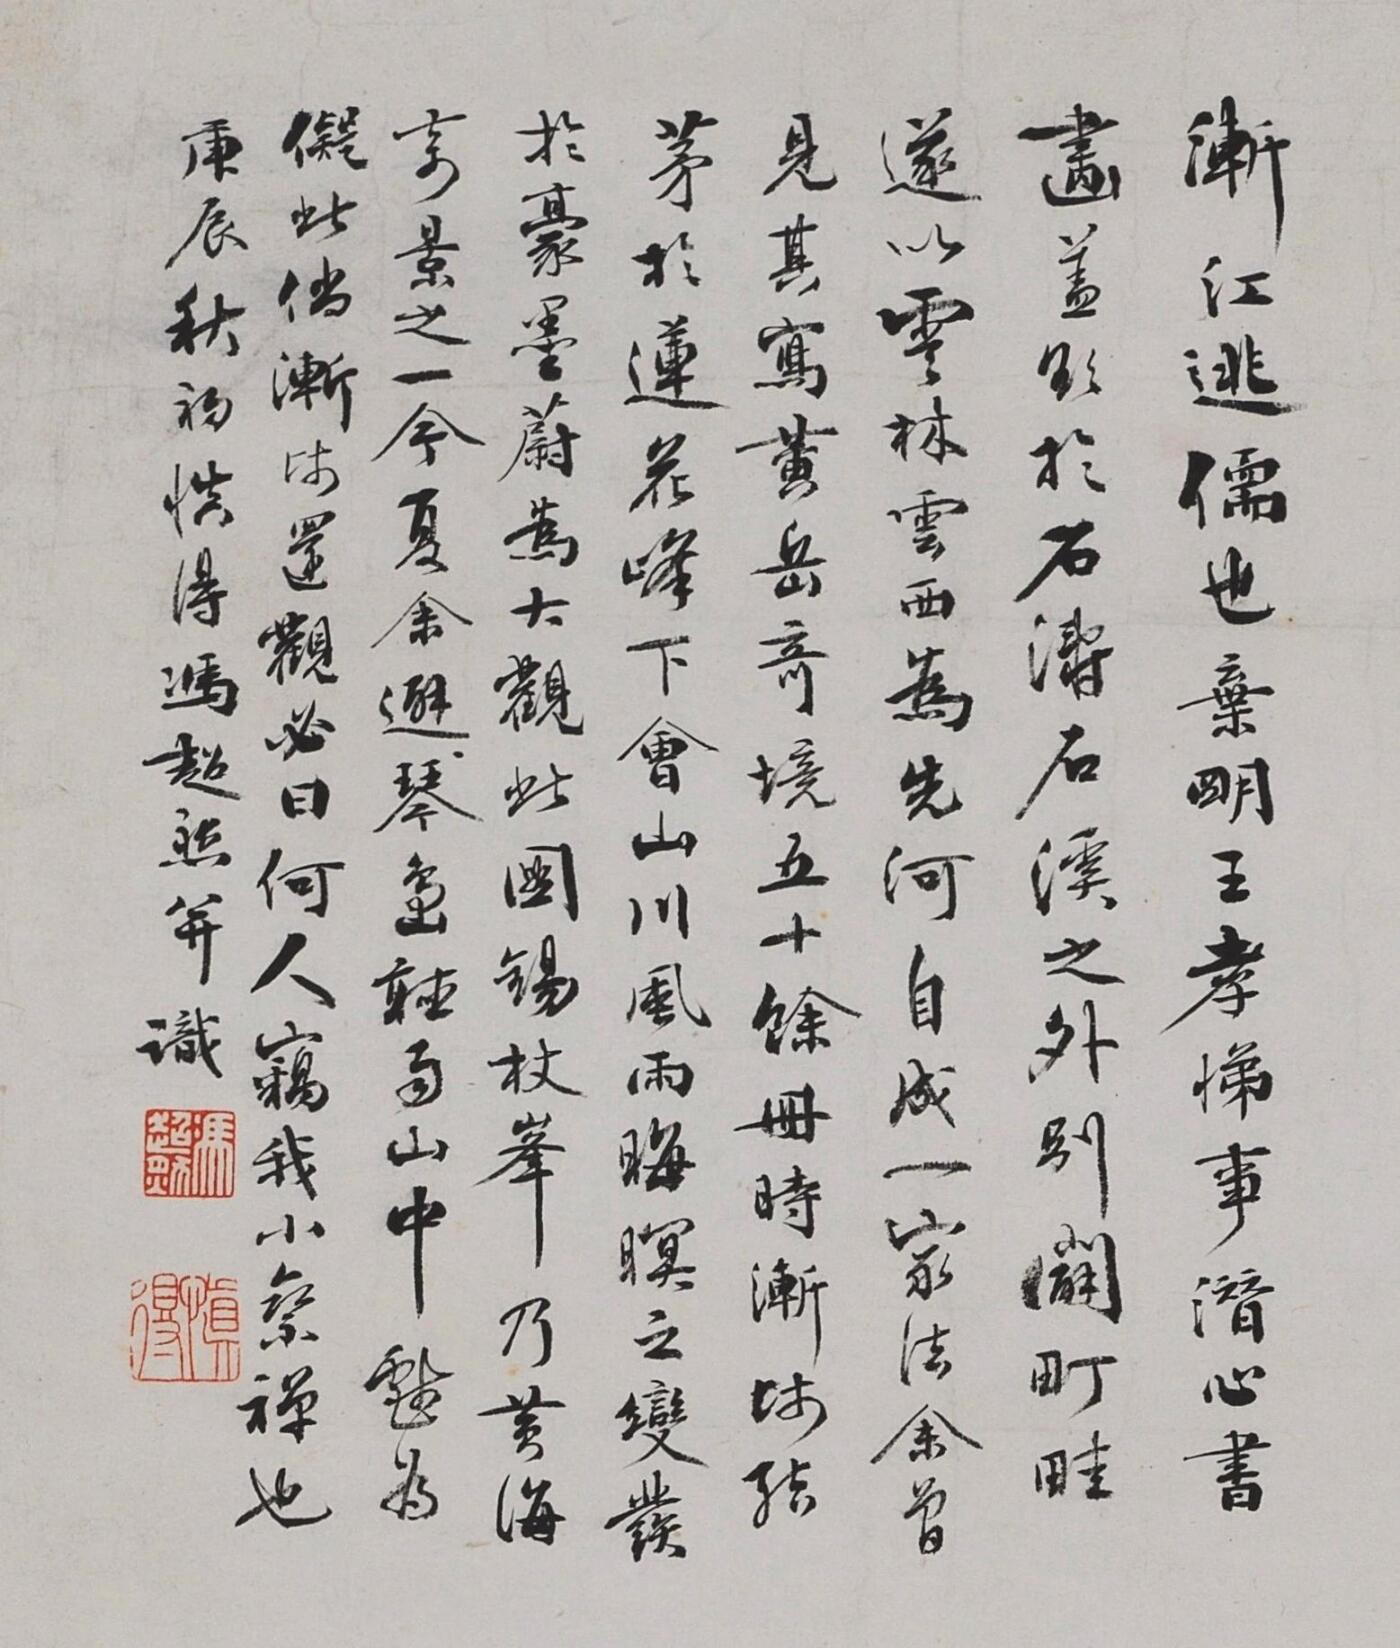 漸江逃儒也棄明王孝悌事潛心書
畫蓋欲於石濤石溪之外別闢町畦
遂以雲林雲西為先河自成一家法余曾
見其寫黃岳奇境五十餘冊時漸師結
茅於蓮花峰下會山川風雨晦暝之變發
於豪墨蔚為大觀此圖錫杖峯乃黃海
奇景之一今夏余避琴島聽雨山中戲為
儗此倘漸師還觀必曰何人竊我小參禪也
庚辰秋初慎得馮超然并識
馮超然
慎得